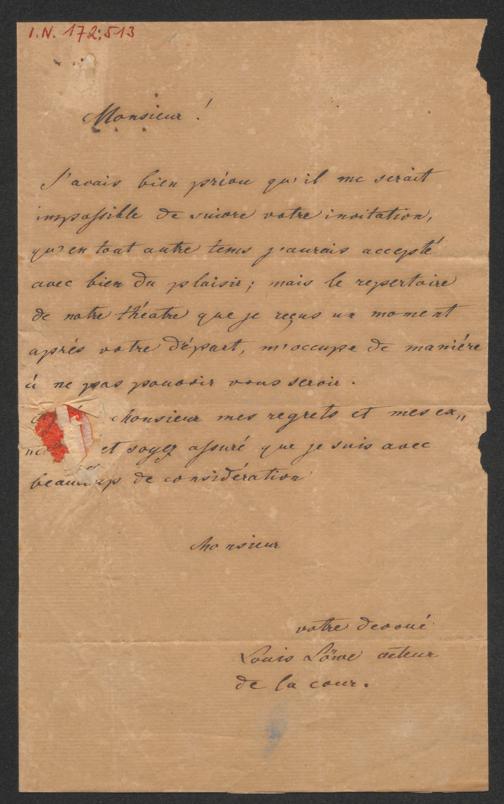 I.N. 172.513
Monsieur!
J'avais bien prévu qu'il me serait
impossible de suivre votre invitation,
qu'en tout autre tems j'aurais accepté
avec bien du plaisir; mais le repertoire
de notre théatre que je reçus un moment
après votre départ, m'occupe de manière
à ne pas pouvoir vous servir.
Monsieur mes regrets et mes ex„
et soyez assuré que je suis avec
beaucoup de considération
Monsieur
votre devoué
Louis Löwe acteur
de la cour.